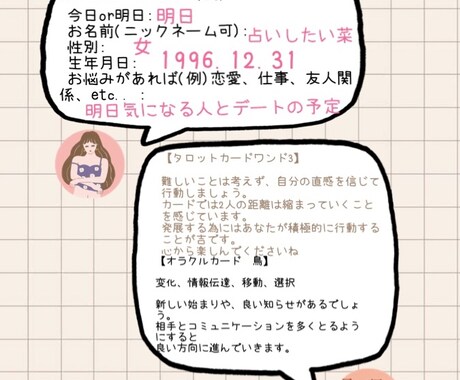 今日or明日: 明日
お名前(ニックネーム可):占いしたい菜
性別: 女
生年月日: 1996.12.31
お悩みがあれば(例)恋愛、仕事、友人関
係、etc.. :
明日気になる人とデートの予定
【タロットカードワンド3】
難しいことは考えず、自分の直感を信じて
行動しましょう。
カードでは2人の距離は縮まっていくこと
を感じています。
発展する為にはあなたが積極的に行動する
ことが吉です。
心から楽しんでくださいね
【オラクルカード 鳥】
変化、情報伝達、移動、選択
新しい始まりや、良い知らせがあるでしょ
う。
相手とコミュニケーションを多くとるよう
にすると
良い方向に進んでいきます。